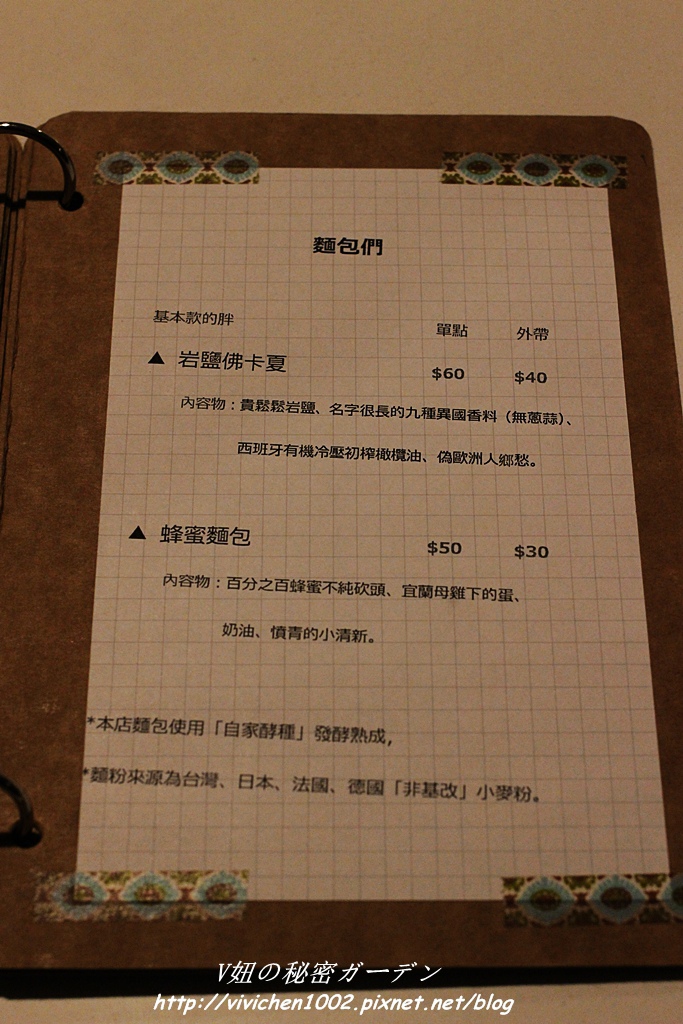 麵包們
基本款的胖 單點 外帶
▲ 岩鹽佛卡夏 $60 $40
內容物：貴鬆鬆岩鹽、名字很長的九種異國香料（無蔥蒜）、
西班牙有機冷壓初榨橄欖油、偽歐洲人鄉愁。
▲ 蜂蜜麵包 $50 $30
內容物：百分之百蜂蜜不純砍頭、宜蘭母雞下的蛋、
奶油、憤青的小清新。
*本店麵包使用「自家酵種」發酵熟成，
*麵粉來源為台灣、日本、法國、德國「非基改」小麥粉。
V妞の秘密ガーデン
http://vivichen1002.pixnet.net/blog